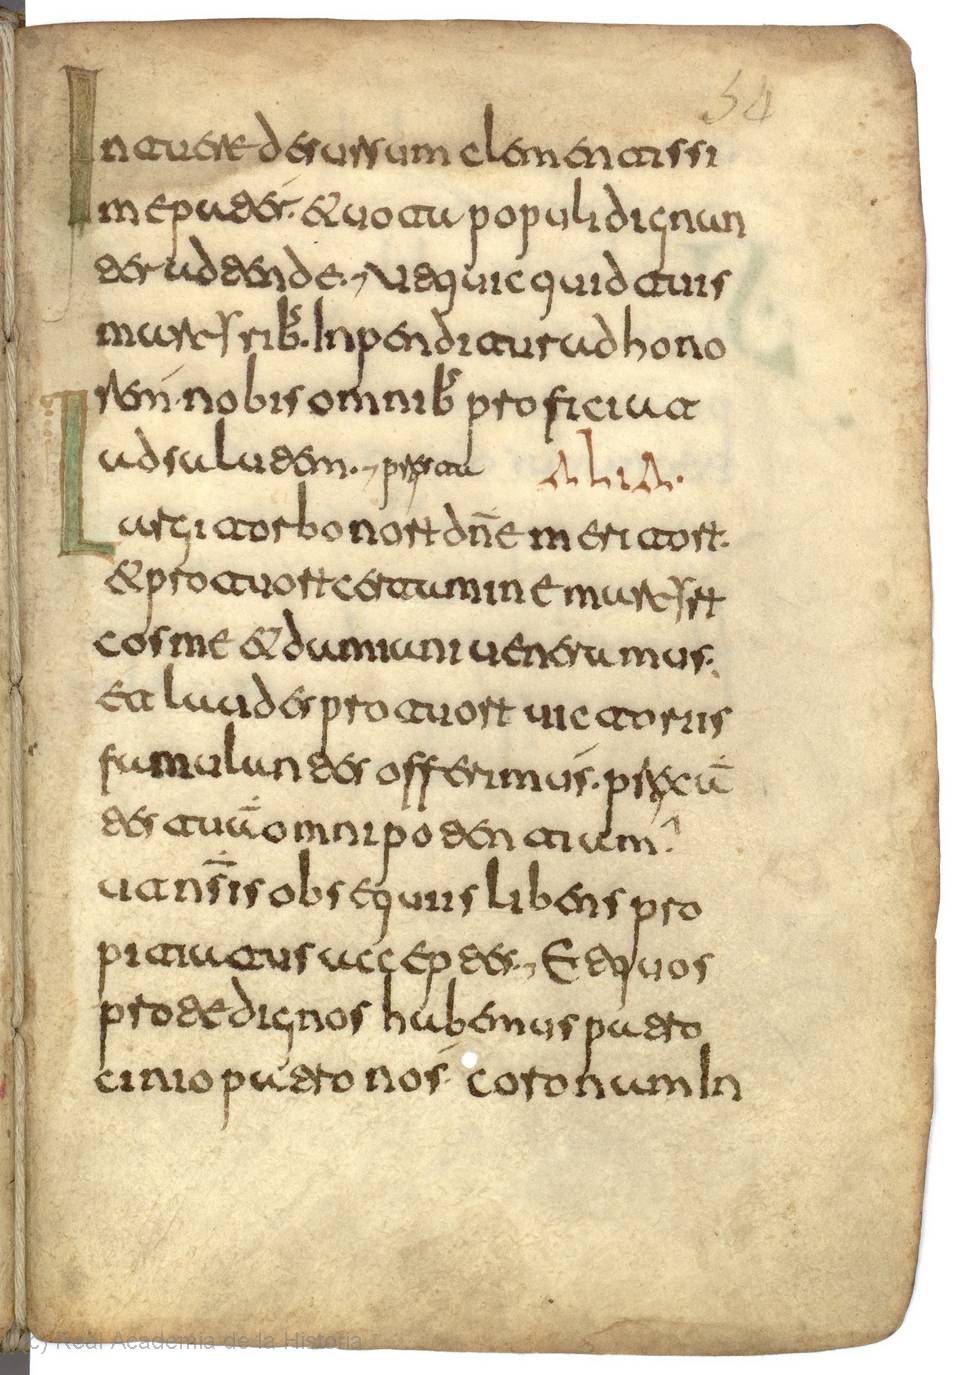 Intuere desursum clementissi
me pater. & uota populi dignan
ter adtende. Ut quicquid tuis
martyrib; Inpenditur ad hono
rem nobis omnib; proficiat
ad salutem. per tu ALIA.
Largitor bonorum dñe meritorum.
& pro tuorum certamine martyrum
cosme & damiani ueneramus.
Et laudes pro tuorum uictoriis
famulantes offerimus. precā
tes tuā omnipotentiam.
ut nsīs obsequiis libens pro
pitiatus acceptes. Et quos
pro te dignos habemus patro
cinio patronos coronam In
54
(c) Real Academia de la Historia